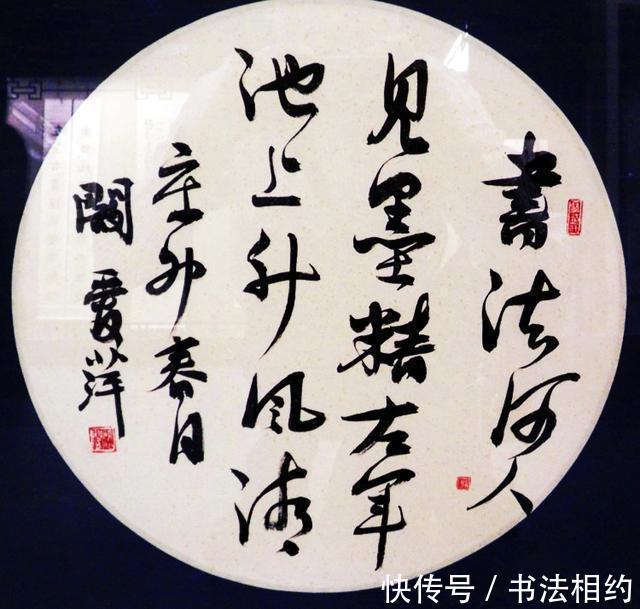 書法何人
見墨精右军
池上升风清
辛卯春日
愛萍
快传号 / 书法相约